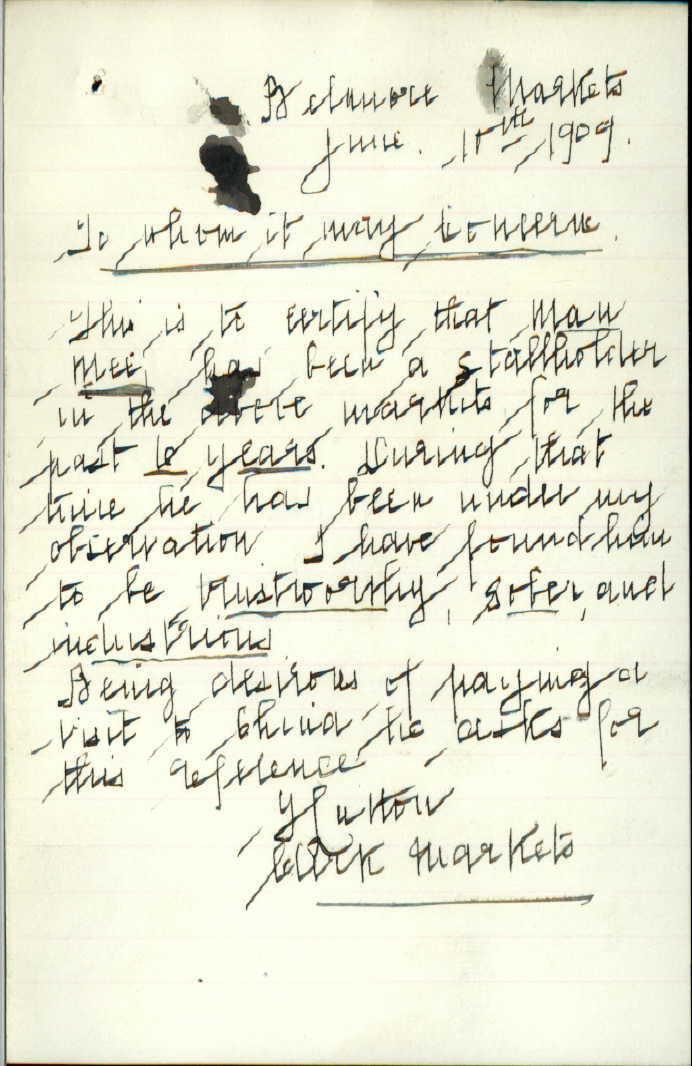 Belmore Markets
June. 10th 1909.
To whom it may concern.
This is to certify that Mau
Mee, has been a stallholder
in the above markets for the
past 6 years. During that
time he has been under my
observation I have found him
to be trustworthy, sober, and
industrious
Being desirous of paying a
visit to China he asks for
this reference
Clerk Markets